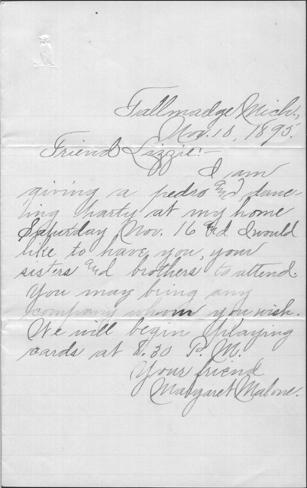 Tallmadge Mich,
Nov. 10, 1895.
Friend Lizzie:-
I am
giving a pedro and danc-
ing party at my home
Saturday, Nov. 16 I would
like to have you, your
sisters and brothers to attend.
You may bring any
company whom you wish.
We will begin playing
cards at 8.30 P.M.
Your friend
Margaret Malone.